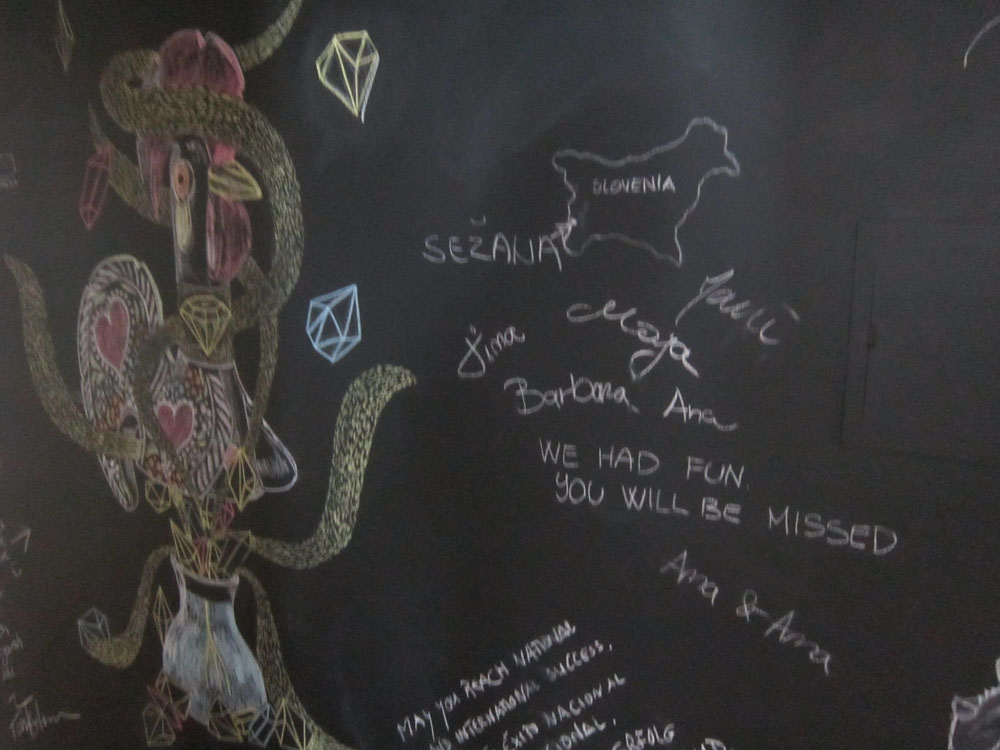 SLOVENIA
SEŽANA
Maja
Barbara Ana
WE HAD FUN.
YOU WILL BE MISSED
Ana & Anna
MAY YOU REACH NATIONAL
AND INTERNATIONAL SUCCESS.
ÉXITO NACIONAL
ERFOLG